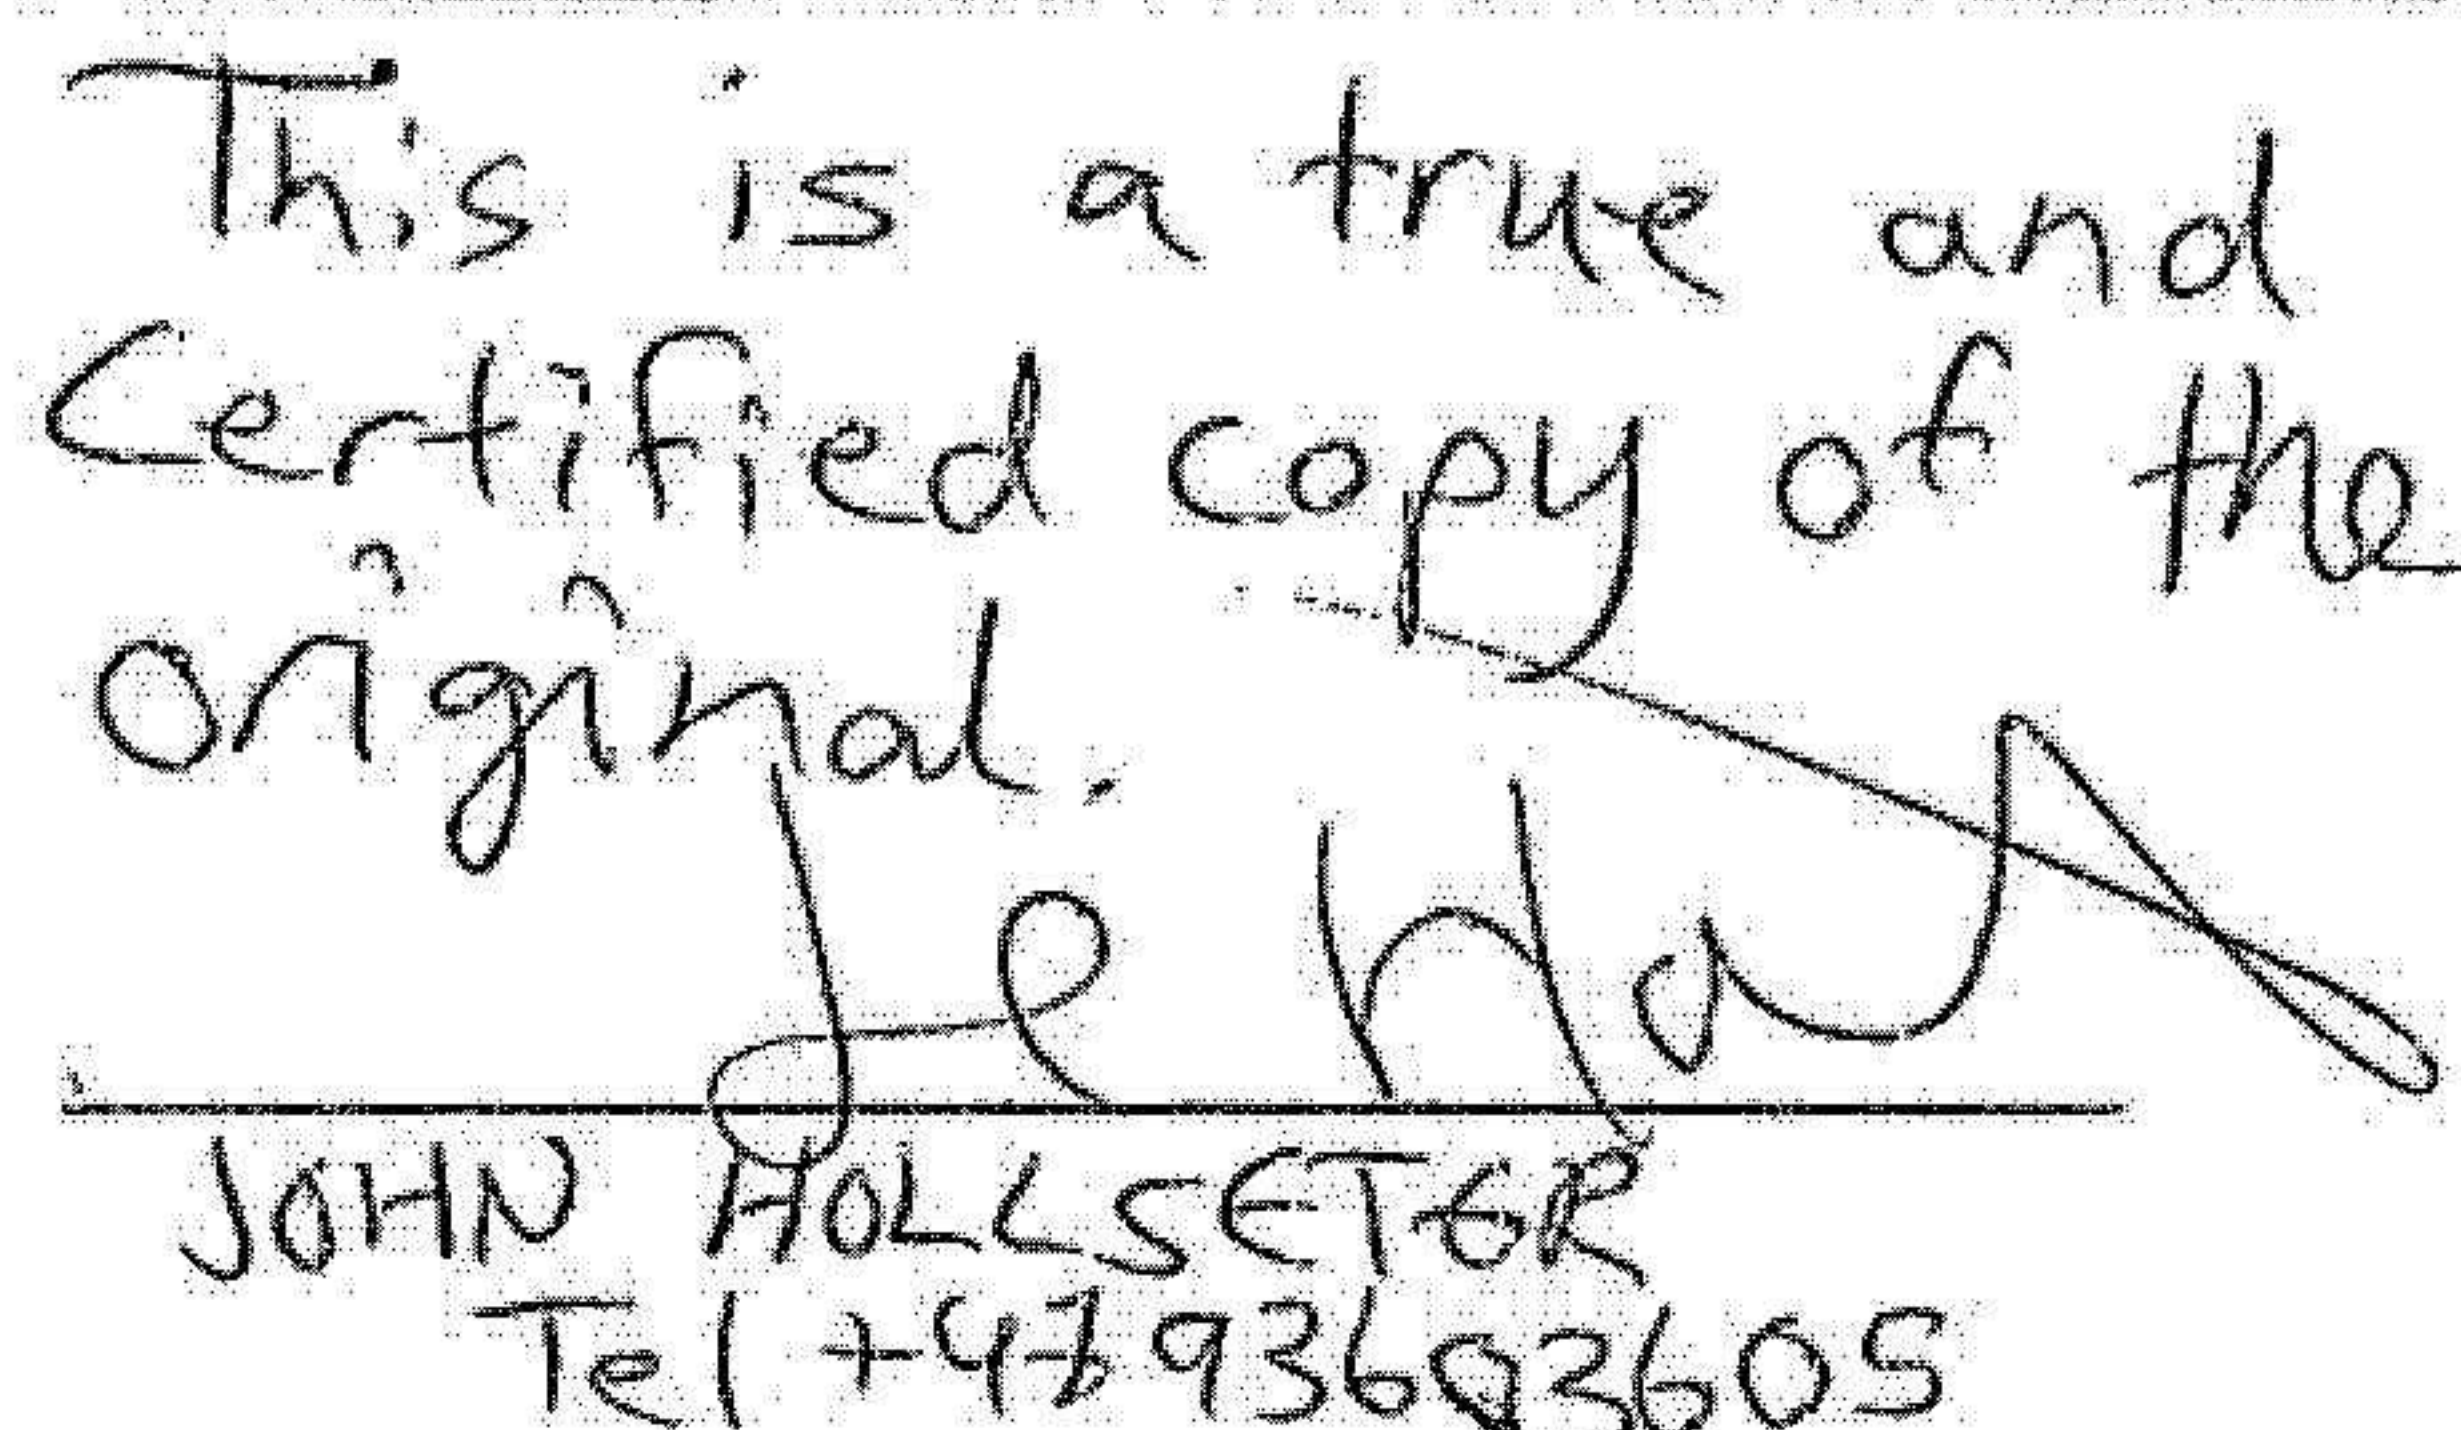 This is a true and
Certified copy of the
original.
JOHN HOLLSETER
Tel +47 93603605